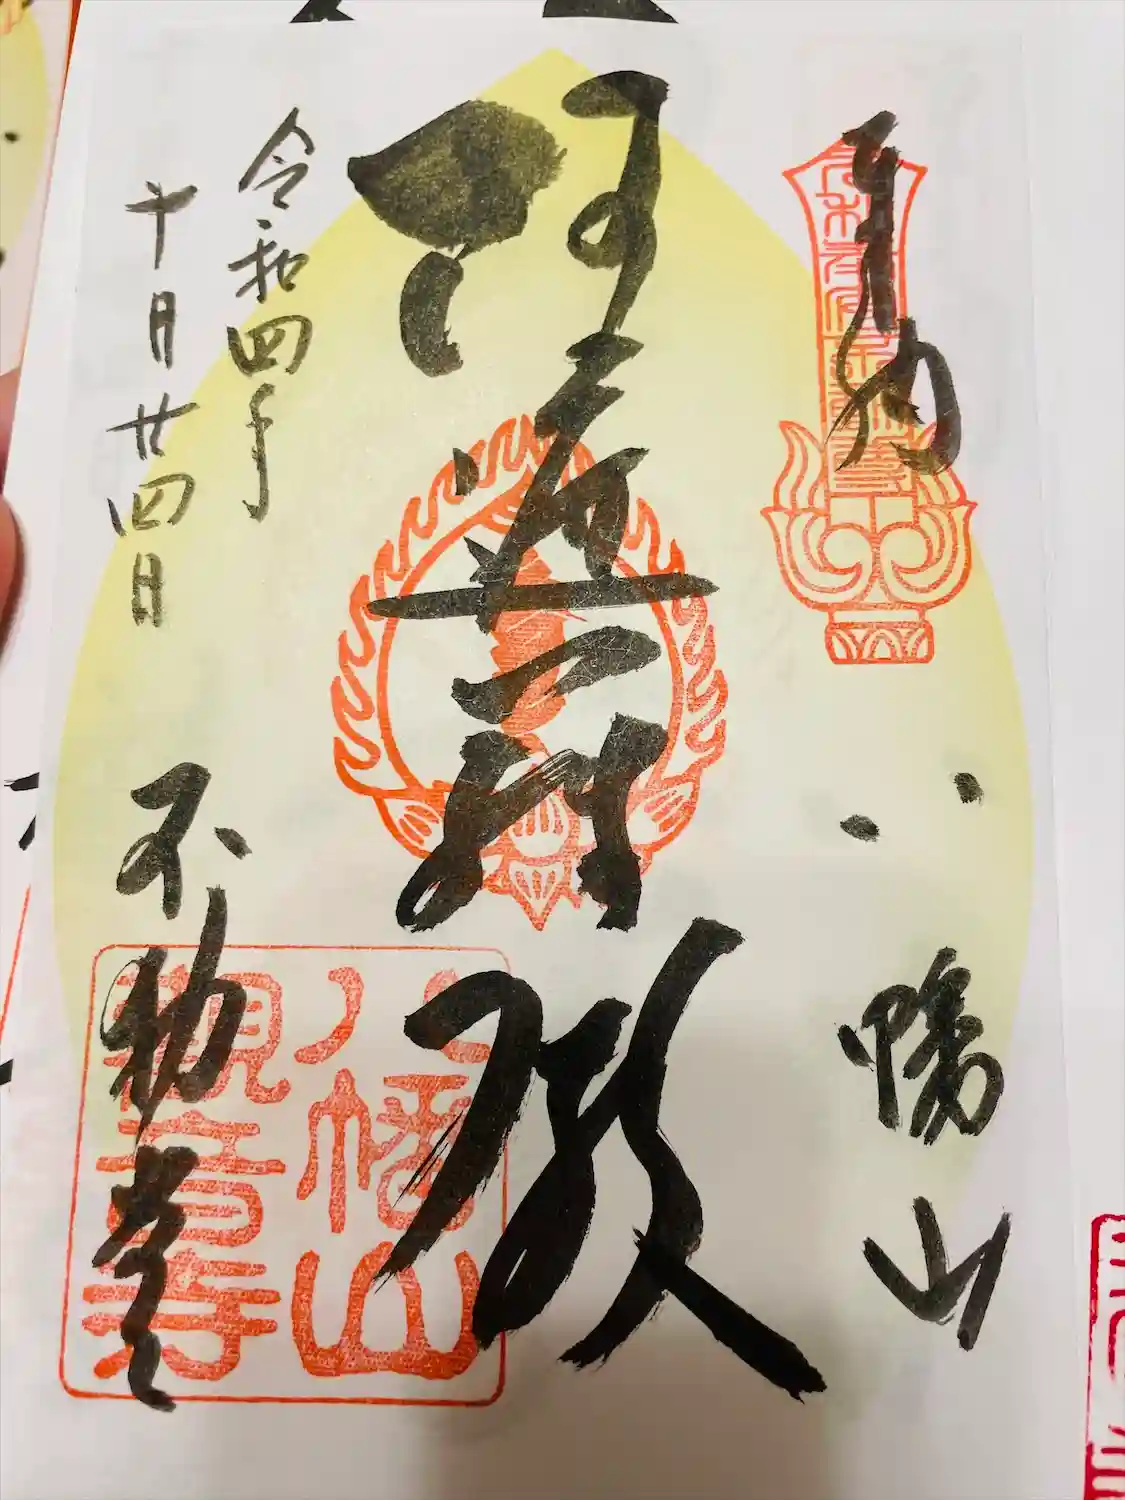 奉納
八幡山
阿遮羅殿
令和四年
十月廿四日
不動堂
八幡山
觀音寺